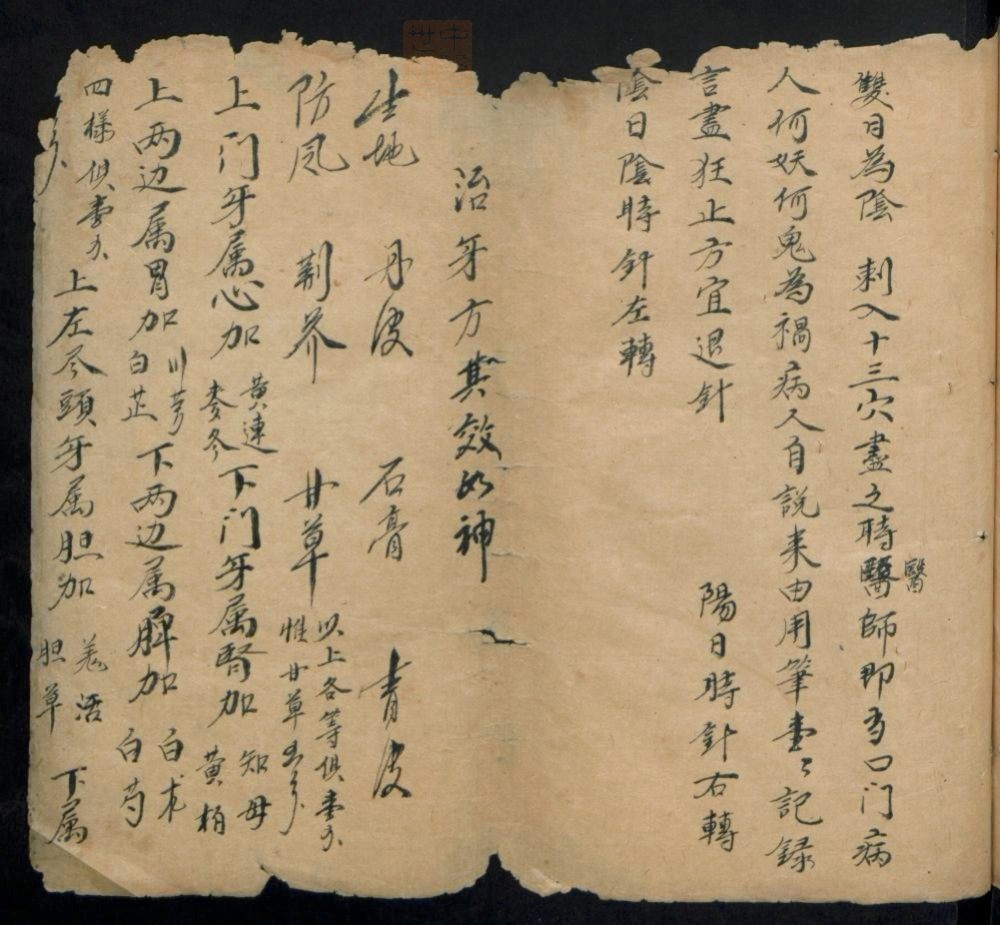 雙日為陰　刺入十三穴盡之時醫師即為口门病
醫
人何妖何鬼為禍病人自説来由用筆壹々記録
言盡狂止方宜退針　陽日時針右轉
陰日陰時針左轉
治牙方其效如神
生地　丹皮　石膏　青皮
防风　荆芥　甘草　以上各等俱壹
惟甘草
上门牙属心加　黄連　麥冬　下门牙属腎加　知母　黄柏
上两边属胃加　川芎　白芷　下两边属脾加　白朮　白芍
四樣俱壹
上左尽頭牙属胆加　羌活　胆草　下属
世中